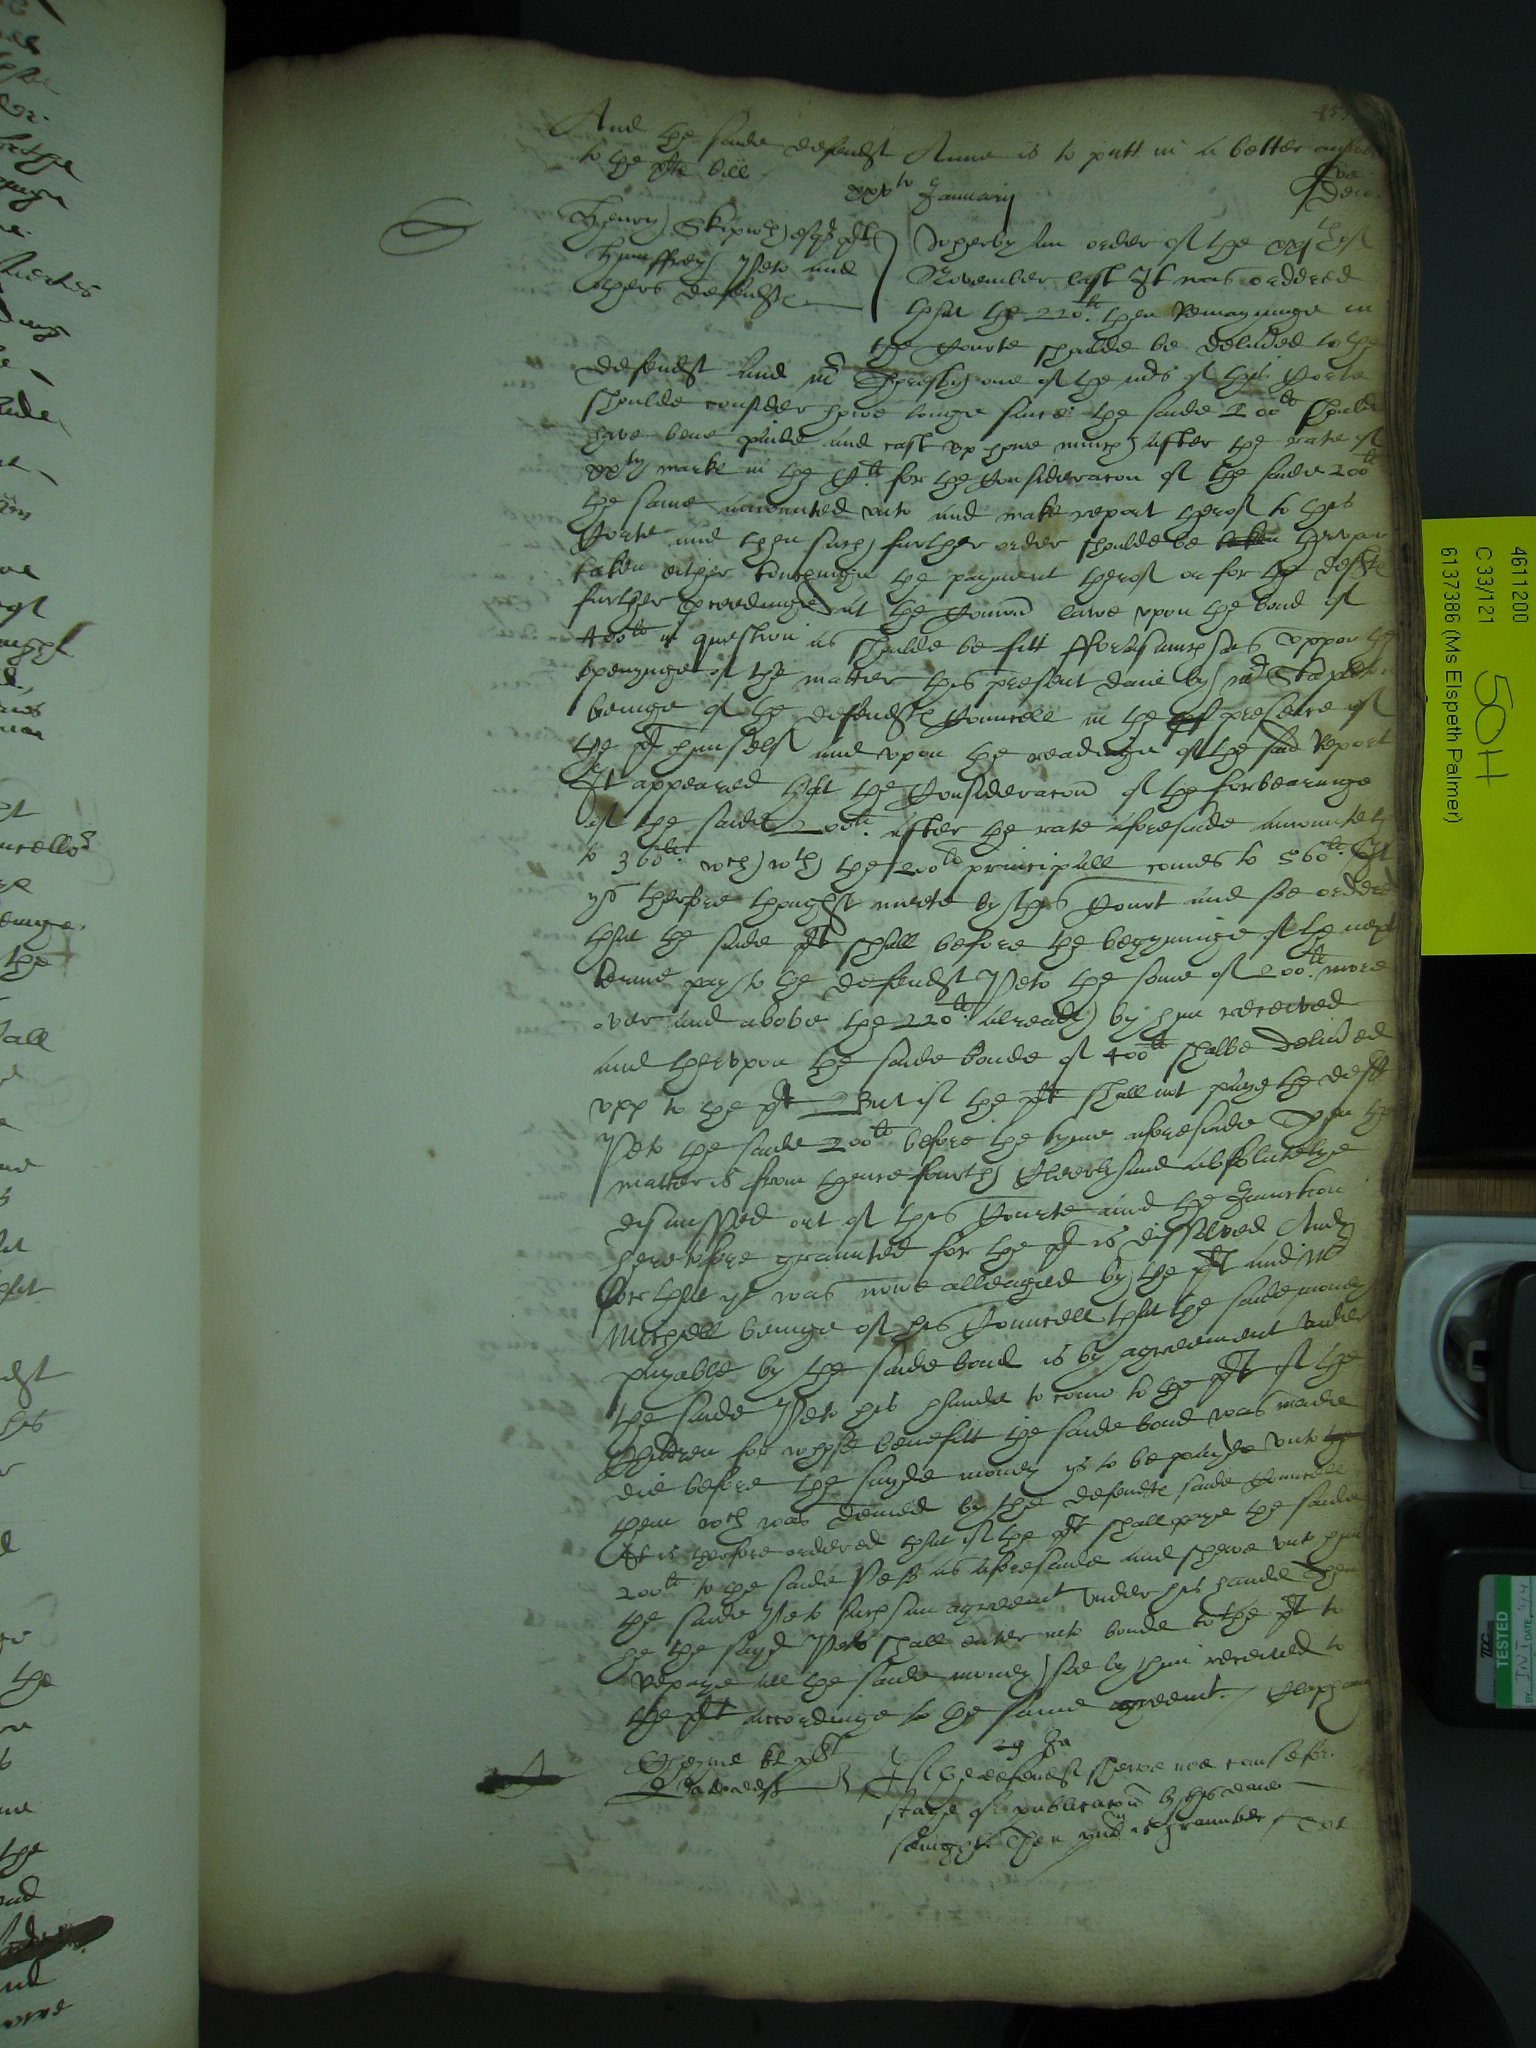 And the saide defendt Anne is to putt in a better answere
to the pltes bill
xxxth January
Henry Skipwith esqr plt
Humffrey Peto and
others defendtes
Wherby an order of the xvjth of
November last It was ordered
that the 220li then Remayninge in
the Courte shoulde be delivred to the
defendt and mr one of the mrs of this Corte
shoulde consider howe longe since the saide 200li should
have bene paide and cast vp howe much after the rate of
marke in the Cli for the Consideracon of the saide 200li
the same amounted vnto and make report therof to this
Corte and then such further order shoulde be taken thervpon
taken either touchinge the payment therof or for the deftes
further proceedinge at the Comon lawe vpon the bond of
400li in question as shoulde be fitt fforasmuch as vppon the
openynge of the matter this present daie by mr
beinge of the defendtes Councell in the presence of
the plt himself and vpon the readinge of the said Report
It appeared that the Consideracon of the forbearinge
of the saide 200li after the rate aforesaide amounteth
to 360li wch with the 200li principall comes to 560li It
ys therfore thought meete by this Court and soe ordered
that the saide plt shall before the begynninge of the next
terme pay to the defendt Peto the some of 200li more
over and above the 220li already by him received
and thervpon the saide bonde of 400li shalbe delivred
vpp to the plt But if the plt shall not paye the deft
Peto the saide 200li before the tyme aforesaide Then the
matter is from thence fourth Clerely and absolutelye
dismissed out of this Courte and the Iniunction
heretofore graunted for the plt is dissolved And
for that yt was nowe alleaged by the plt and mr
Michell beinge of his Councell that the saide money
payable by the saide bond is by agreement vnder
the saide Peto his hande to come to the plt if the
Children for whose benefitt the saide bond was made
die before the sayde money ys to be payde vnto the
them wch was denied by the defendtes saide Councell
It is therfore ordered that if the plt shall paye the saide
200li to the saide Peto as aforesaide and shewe vnto him
the saide Peto such an agreement vnder his hande Then
he the sayd Peto shall enter into bonde to the plt to
repaye all the saide money soe by him received to
the plt accordinge to the same agreemt.
29 Ja
kt plt
deft
If the defendt shewe noe cause for
staye of publicacon by this daie
sevnight Then publicacon is graunted
4611200
C 33/121
6137386 (Ms Elspeth Palmer)
50H
TESTED